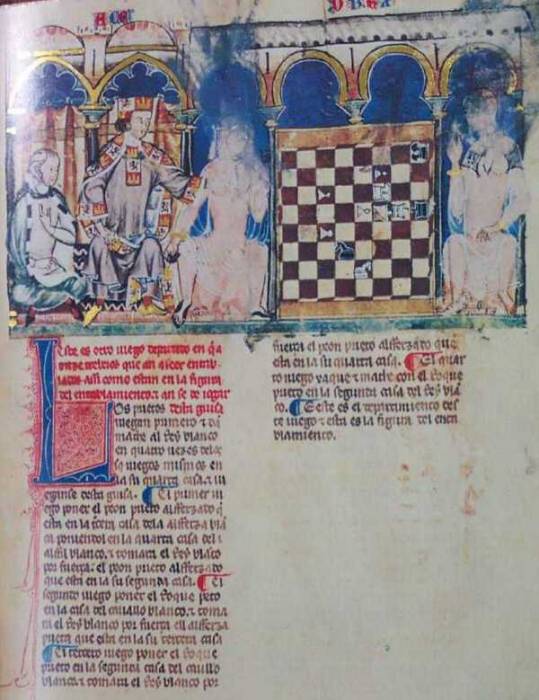 Este es otro iuego departido en q̃ a
onze trebeios que an a seer entab
lados assi como estan en la figura
del entablamiento. ⁊ an se de iogar
Los prietos desta guisa.
iuegan primero ⁊ dã
mathe al Rey blanco
en quatro uezes delos
sus iuegos mismos en
la su quarta casa. ⁊ iu
eganse desta guisa. El primer iu
ego poner el peon prieto alfferzado q̃
esta en la tercera casa dela alfferza blã
ca poniendol en la quarta casa del
alffil blanco. ⁊ tomara el Rey blãco
por fuerça. el peon prieto alfferzado
que esta en la su segunda casa. El
segundo iuego poner el Roque prieto
en la casa del cauallo blanco. ⁊ toma
ra el Rey blanco por fuerça ell alfferza
prieta que esta en la su tercera casa
El tercero iuego poner el Roque
prieto en la segunda casa del cauallo
blanco. ⁊ tomara el Rey blanco por
fuerça el peon prieto alfferzado que
esta en la su quarta casa. El quar
to iuego xaque ⁊ mathe con el Roque
prieto en la segunda casa del Rey blã
co. E este es el departimiento des
te iuego ⁊ esta es la figura del enta
blamiento.